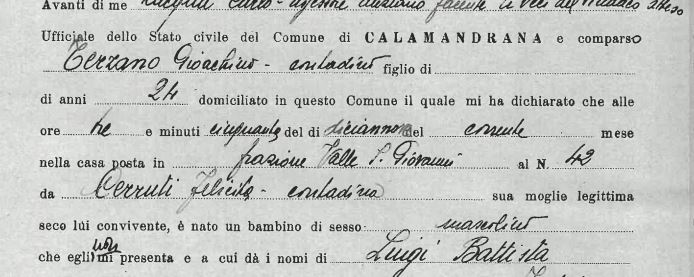 Avanti di me Carlo - assessore anziano facente le veci del Sindaco atteso
Ufficiale dello Stato civile del Comune di CALAMANDRANA e comparso
Terzano Gioachino - contadino figlio di
di anni 24 domiciliato in questo Comune il quale mi ha dichiarato che alle
ore tre e minuti cinquanta del dì diciannove del corrente mese
nella casa posta in frazione Valle S. Giovanni al N. 42
da Cerruti Felicita - contadina sua moglie legittima
seco lui convivente, è nato un bambino di sesso mascolino
che egli non mi presenta e a cui dà i nomi di Luigi Battista